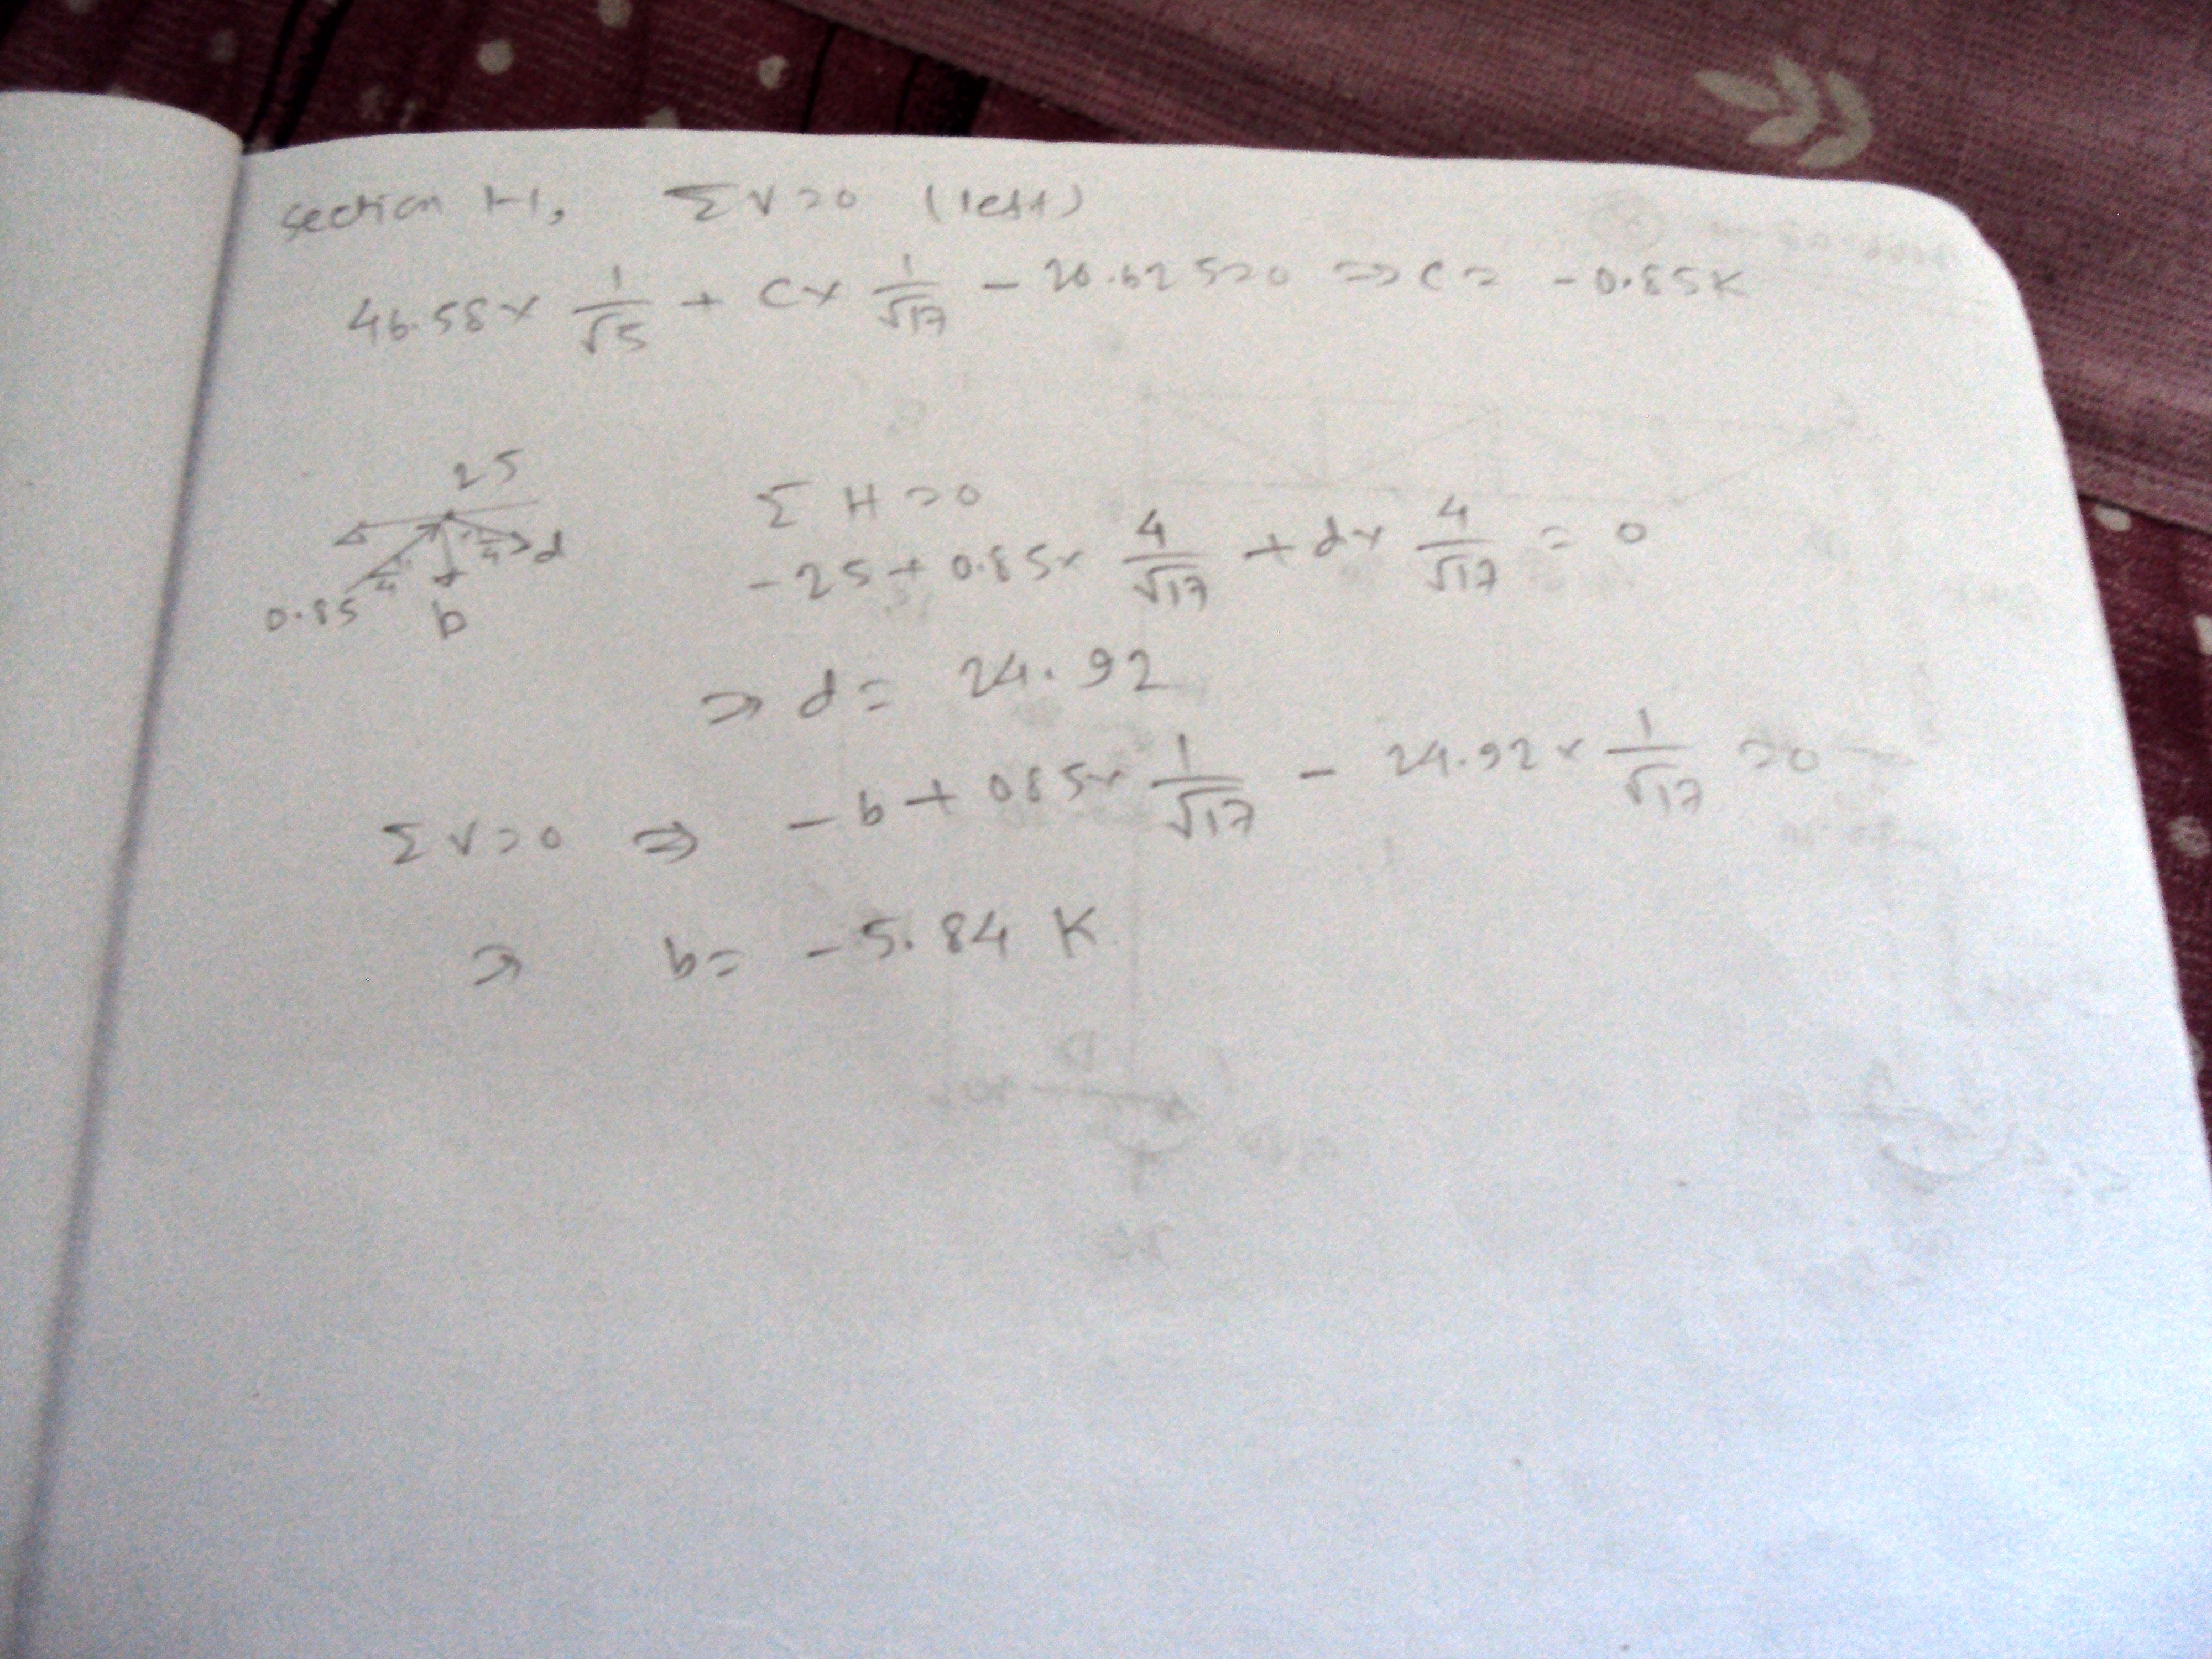 section 1-1, ΣV=0 (left)
46.58 × 1/√5 + C × 1/√17 - 20.625=0 ⇒ C = -0.85K
25
ΣH=0
-25 + 0.85 × 4/√17 + d × 4/√17 = 0
4 4 d
0.85 b
⇒ d = 24.92
ΣV=0 ⇒ -b + 0.85 × 1/√17 - 24.92 × 1/√17 =0
⇒ b = -5.84 K